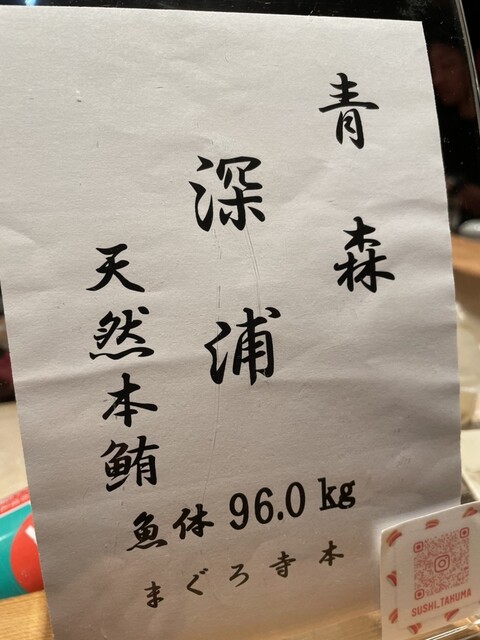 青森
深浦
天然本鮪
魚体 96.0 kg
まぐろ寺本
SUSHI_TAKUMA